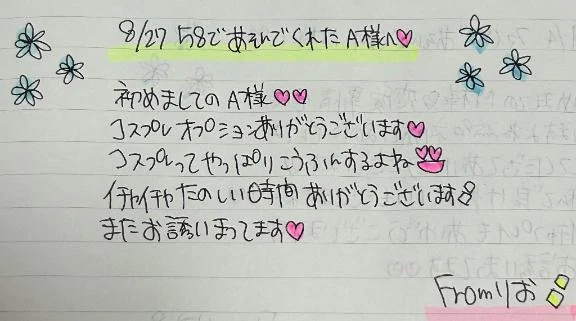 8/27 58であそんでくれたA様へ♡
初めましてのA様♡♡
コスプレオプションありがとうございます♡
コスプレってやっぱりこうふんするよね
イチャイチャたのしい時間ありがとうございます
またお誘いまってます♡
Fromりお